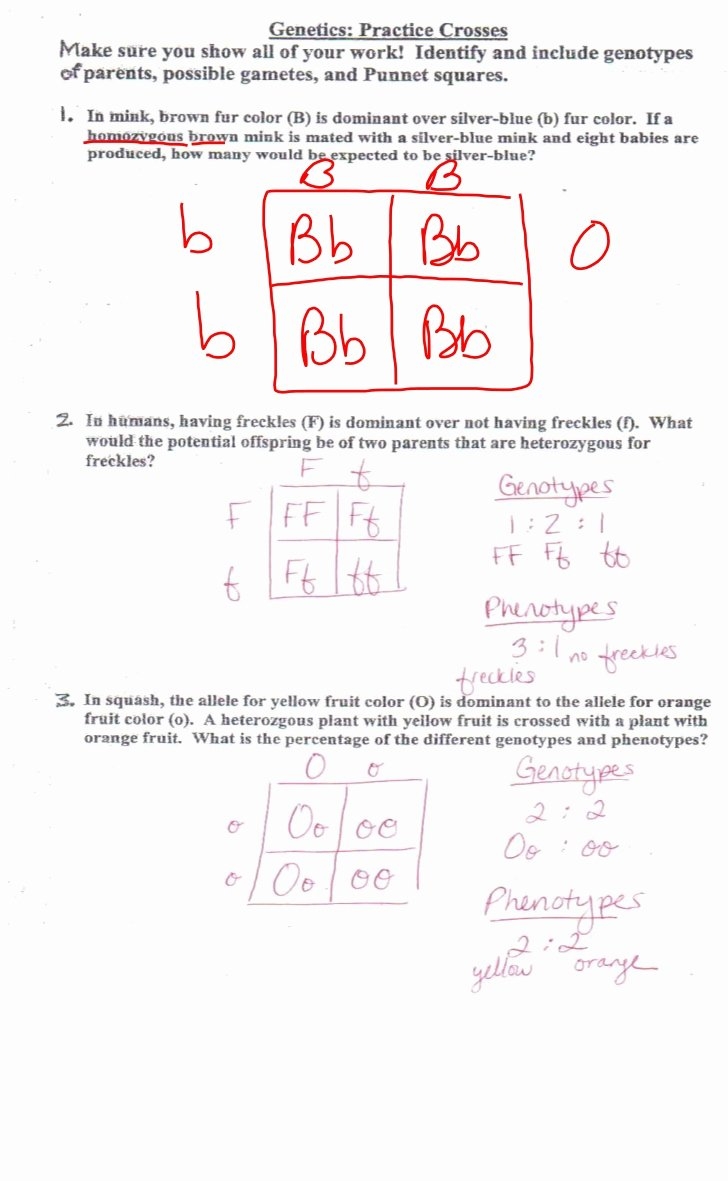 Genetics: Practice Crosses
Make sure you show all of your work! Identify and include genotypes
of parents, possible gametes, and Punnet squares.
1. In mink, brown fur color (B) is dominant over silver-blue (b) fur color. If a
homozygous brown mink is mated with a silver-blue mink and eight babies are
produced, how many would be expected to be silver-blue?
B B
b Bb Bb O
b Bb Bb
2. In humans, having freckles (F) is dominant over not having freckles (f). What
would the potential offspring be of two parents that are heterozygous for
freckles?
F f
Genotypes
F FF Ff 1 : 2 : 1
FF Ff ff
f Ff ff
Phenotypes
3 : 1 no freckles
freckles
3. In squash, the allele for yellow fruit color (O) is dominant to the allele for orange
fruit color (o). A heterozgous plant with yellow fruit is crossed with a plant with
orange fruit. What is the percentage of the different genotypes and phenotypes?
O o Genotypes
o Oo oo 2 : 2
Oo : oo
o Oo oo
Phenotypes
2 : 2
yellow orange